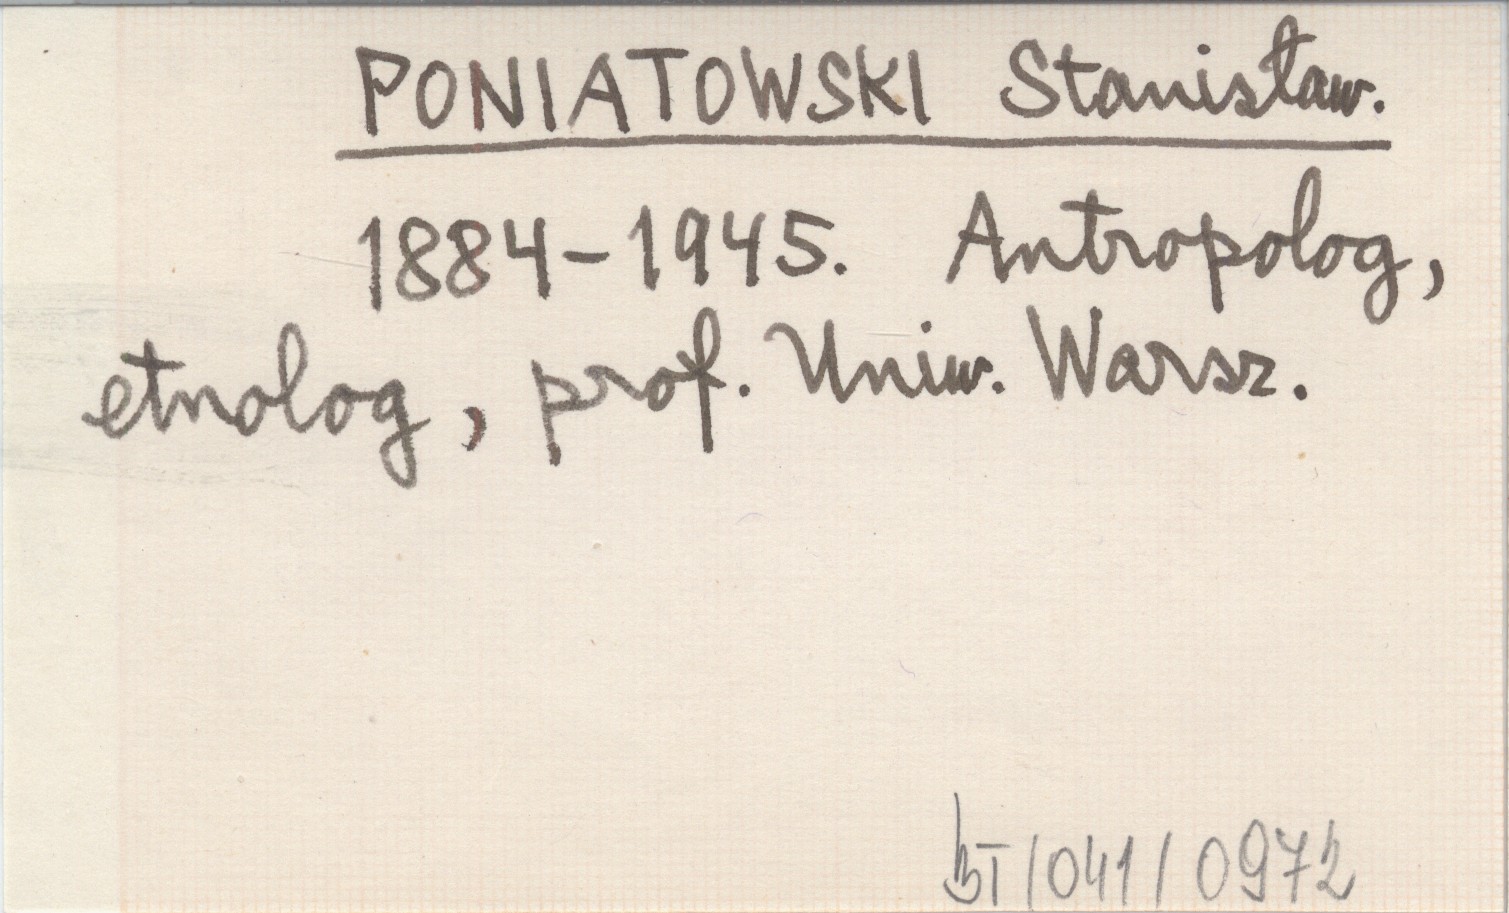 PONIATOWSKI Stanisław.
1884-1945. Antropolog,
etnolog, prof. Uniw. Warsz.
BT/041/0972